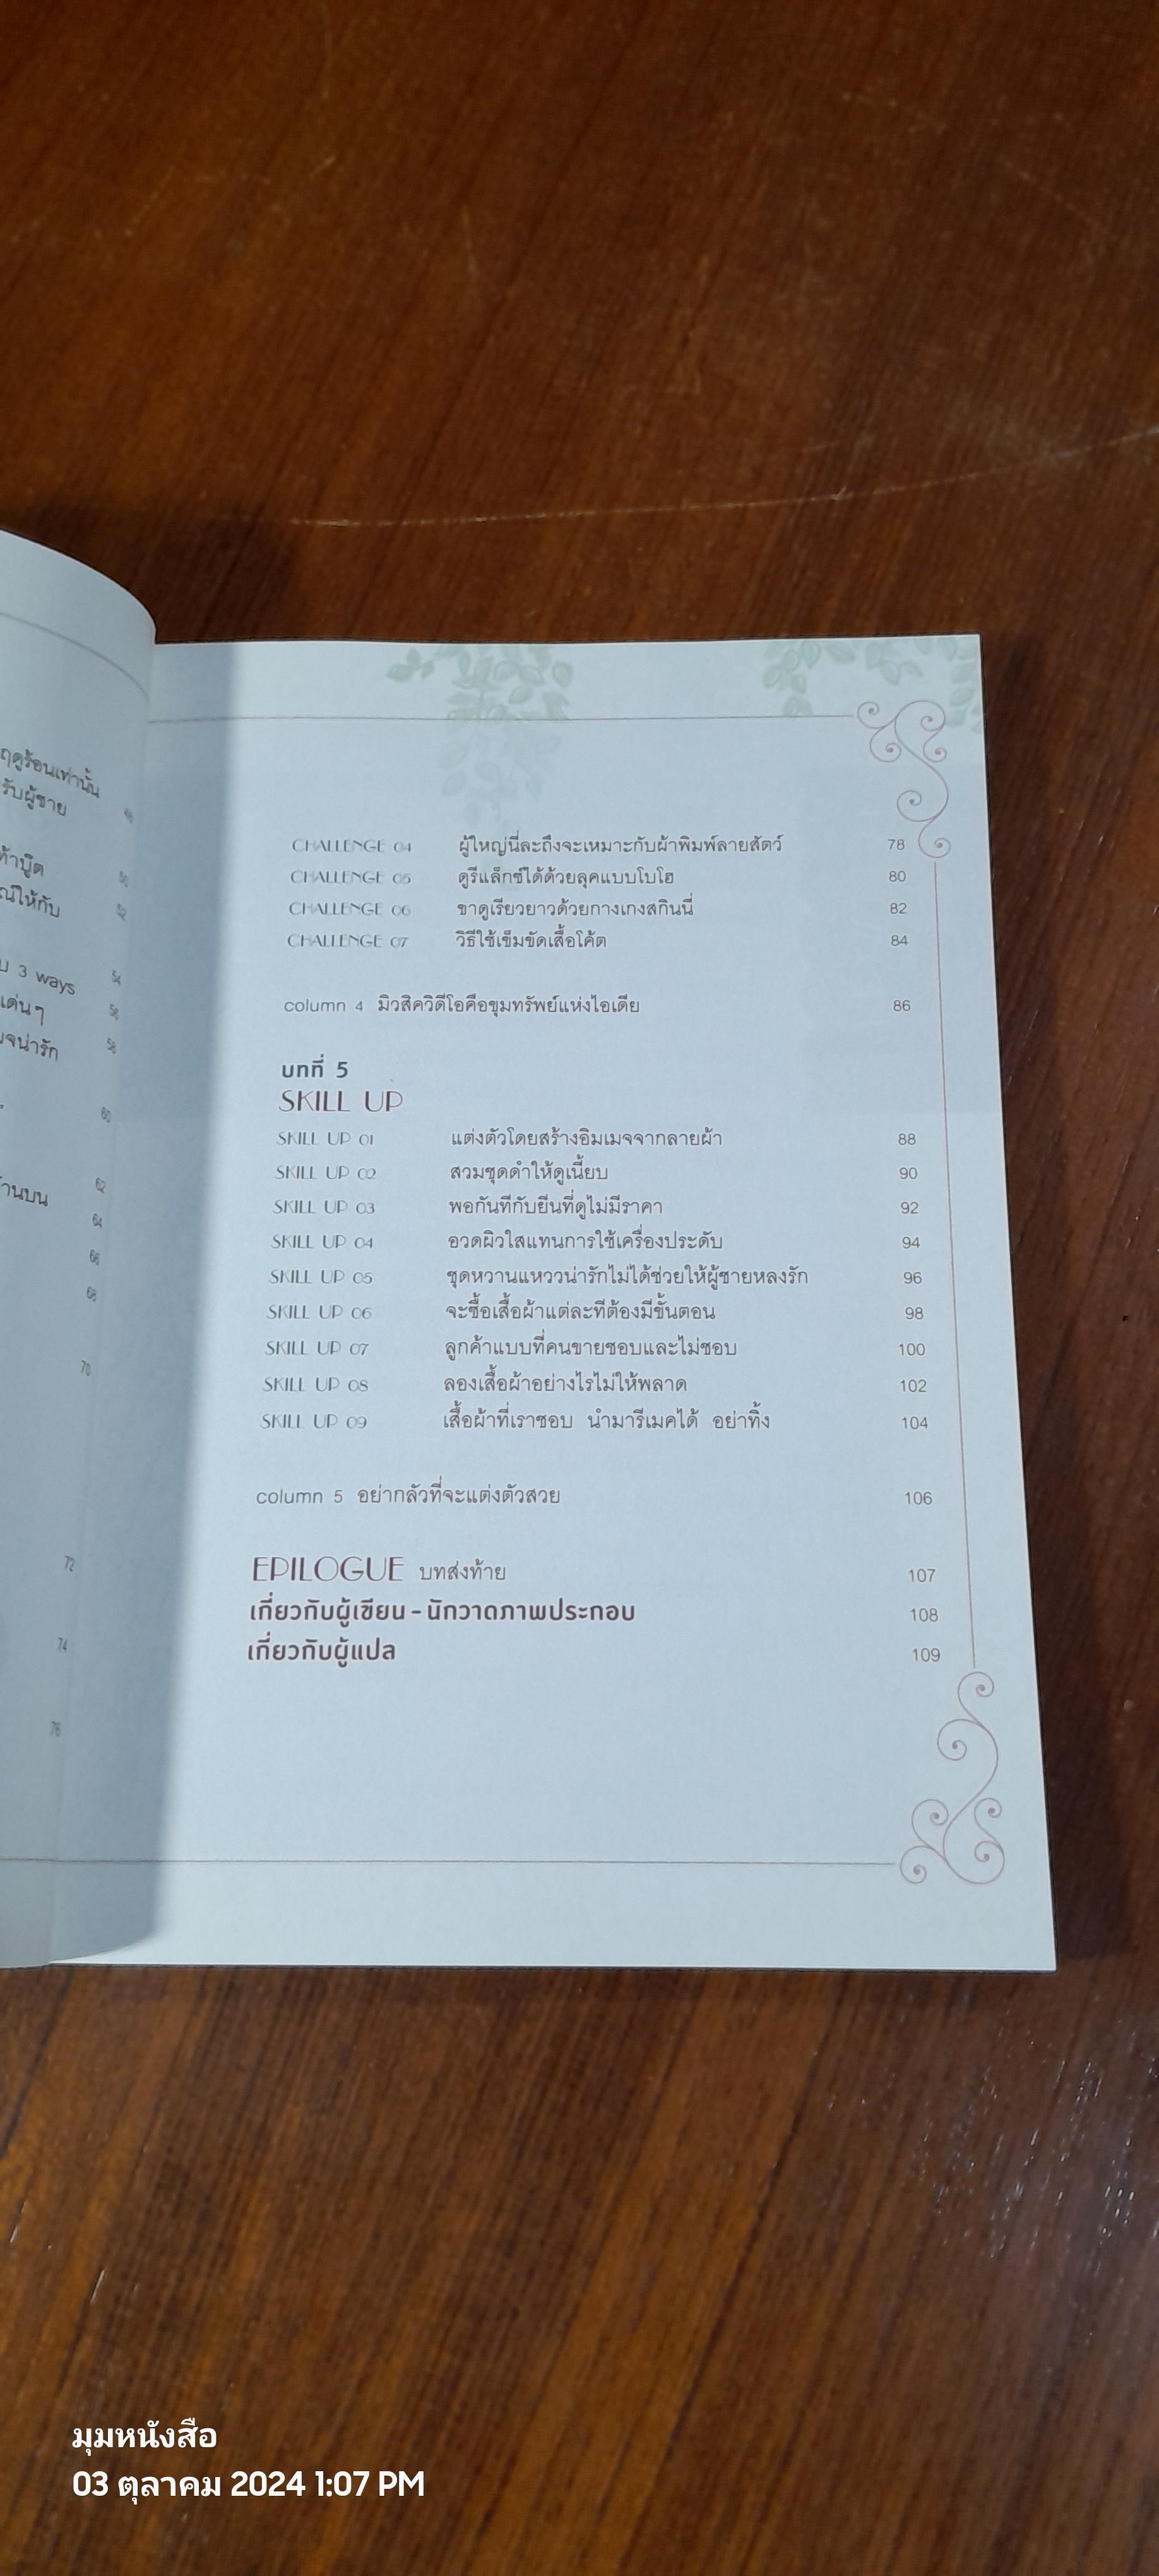 ฤดูร้อนเท่านั้น 48
รับผู้ชาย
50
52
3 ways 54
เด่นๆ 56
58
60
62
64
66
68
70
72
74
76
CHALLENGE 04 ผู้ใหญ่นี่ละถึงจะเหมาะกับผ้าพิมพ์ลายสัตว์ 78
CHALLENGE 05 ดูรีแล็กซ์ได้ด้วยลุคแบบโบโฮ 80
CHALLENGE 06 ขาดูเรียวยาวด้วยกางเกงสกินนี่ 82
CHALLENGE 07 วิธีใช้เข็มขัดเสื้อโค้ต 84
column 4 มิวสิควิดีโอคือขุมทรัพย์แห่งไอเดีย 86
บทที่ 5
SKILL UP
SKILL UP 01 แต่งตัวโดยสร้างอิมเมจจากลายผ้า 88
SKILL UP 02 สวมชุดดำให้ดูเนี้ยบ 90
SKILL UP 03 พอกันทีกับยีนที่ดูไม่มีราคา 92
SKILL UP 04 อวดผิวใสแทนการใช้เครื่องประดับ 94
SKILL UP 05 ชุดหวานแหววน่ารักไม่ได้ช่วยให้ผู้ชายหลงรัก 96
SKILL UP 06 จะซื้อเสื้อผ้าแต่ละทีต้องมีขั้นตอน 98
SKILL UP 07 ลูกค้าแบบที่คนขายชอบและไม่ชอบ 100
SKILL UP 08 ลองเสื้อผ้าอย่างไรไม่ให้พลาด 102
SKILL UP 09 เสื้อผ้าที่เราชอบ นำมารีเมคได้ อย่าทิ้ง 104
column 5 อย่ากลัวที่จะแต่งตัวสวย 106
EPILOGUE บทส่งท้าย 107
เกี่ยวกับผู้เขียน - นักวาดภาพประกอบ 108
เกี่ยวกับผู้แปล 109
มุมหนังสือ
03 ตุลาคม 2024 1:07 PM